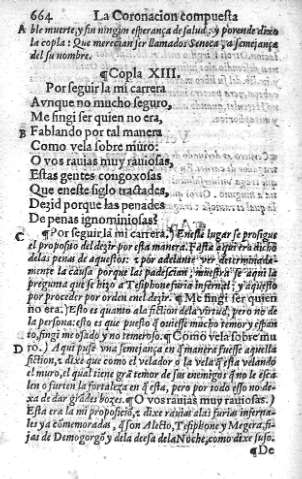 664 La Coronacion compuesta
A ble muerte, y sin ningun esperança de salud, y porende dixo
la copla: Que merecian ser llamados Seneca, a semejança
del su nombre.
¶Copla XIII.
Por seguir la mi carrera
Avnque no mucho seguro,
Me fingi ser quien no era,
B Fablando por tal manera
Como vela sobre muro:
O vos rauias muy rauiosas,
Estas gentes congoxosas
Que eneste siglo tractades,
Dezid porque las penades
De penas ignominiosas?
C ¶Por seguir la mi carrera,) Eneste lugar se prosigue
el proposito del dezir por esta manera. Fasta aqui era dicho
delas penas de aquestos: z por adelante ver determinada-
mente la causa porque las padescian; muestra se aqui la
pregunta que se hizo a Tesiphone furia infernal; y aquesto
por proceder por orden enel dezir. ¶Me fingi ser quien
no era.) Esto es quanto ala fiction dela virtud; pero no de
la persona: esto es que puesto q̃ ouiesse mucho temor y espan
to, fingi me osado y no temeroso. ¶Como vela sobre mu
D ro.) Aqui puse vna semejança en q̃ manera fuesse aquella
fiction, z dixe que como el velador o la vela q̃ esta velando
el muro, el qual tiene grã temor de sus enemigos q̃ no le esca
len o furten la fortaleza en q̃ esta, pero por todo esso no de-
xa de dar grãdes bozes. ¶O vos rauias muy rauiosas.)
Esta era la mi proposiciõ, z dixe rauias ala: furias inferna-
les ya cõmemoradas, q̃ son Alecto, Tesiphone y Megera, fi-
jas de Demogorgõ y dela deesa dela Noche, como dixe suso.
¶De